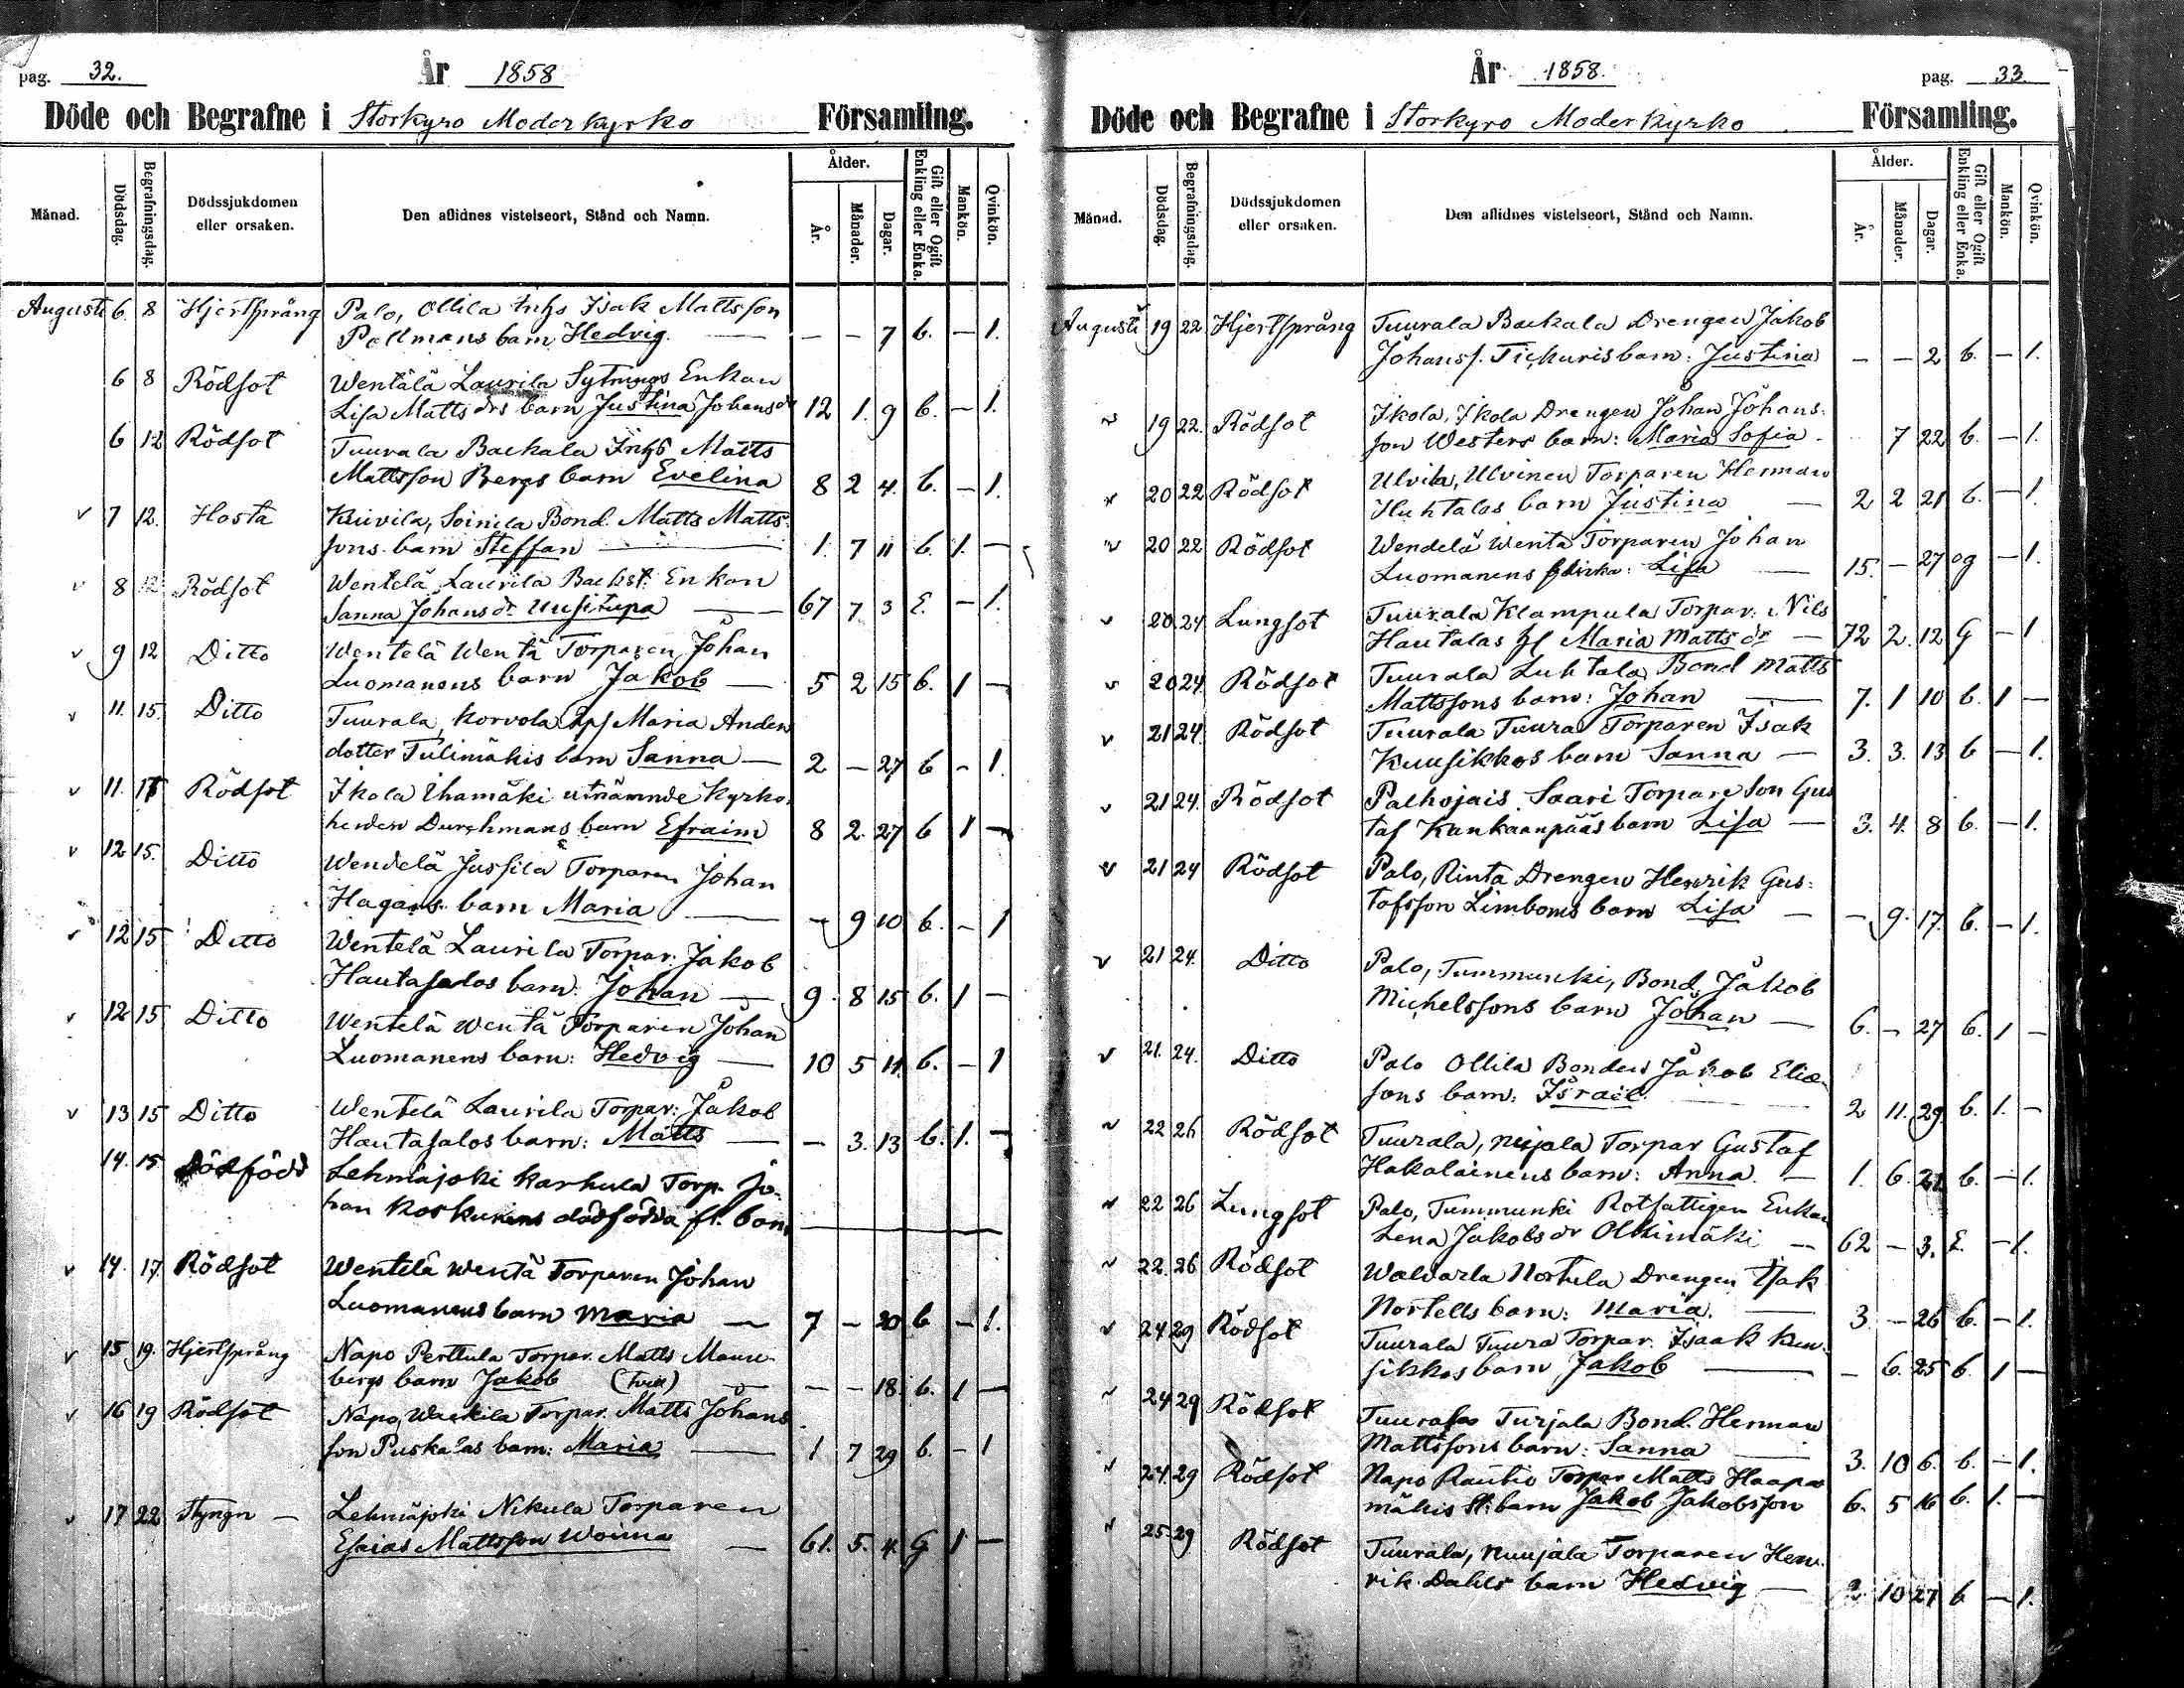 pag. 32. År 1858
Döde och Begrafne i Storkyro Moderkyrko Församling.
Månad. Dödsdag. Begrafningsdag. Dödssjukdomen eller orsaken. Den aflidnes vistelseort, Stånd och Namn. Ålder. År. Månader. Dagar. Gift eller Ogift Enkling eller Enka. Mankön. Qvinkön.
Augusti 6. 8 Hjertsprång Palo, Ollila Inhs Isak Mattsson
Pollmans barn Hedvig. — — — 7 b. — 1.
6 8 Rödsot Wentälä Laurila Sytnings Enkan
Lisa Mattsdrs barn Justina Johansdr 12 1. 9 b. — 1.
6 12 Rödsot Tuurala Backala Inhs Matts
Mattsson Bergs barn Evelina 8 2 4. b. — 1.
v 7 12. Hosta Kuivila, Soinila Bond. Matts Matts
sons barn Steffan — 1. 7 11 b. 1. —
v 8 12 Rödsot Wentelä Laurila Backst. Enkan
Sanna Johansdr Uusitupa — 67 7 3 E. — 1.
v 9 12 Ditto Wentelä Wentä Torparen Johan
Luomanens barn Jakob — 5 2 15 b. 1 —
v 11. 15. Ditto Tuurala, Korvola Maria Anders
dotter Tulimäkis barn Sanna — 2 — 27 b — 1.
v 11. Rödsot Ikola Ihamäki utnämnde Kyrko
herden Durchmans barn Efraim 8 2. 27 b 1 —
v 12 15. Ditto Wendelä Jussila Torparen Johan
Hagans barn Maria — — 9 10 b. — 1
12 15 Ditto Wentelä Laurila Torpar. Jakob
Hautasalos barn. Johan — 9. 8 15 b. 1 —
v 12 15 Ditto Wentelä Wentä Torparen Johan
Luomanens barn: Hedvig — 10 5 11. b. — 1
v 13 15 Ditto Wentelä Laurila Torpar: Jakob
Hautasalos barn: Matts — — 3. 13 b. 1. —
14. 15 Dödfödd Lehmäjoki Karhula Torp. Jo-
han Koskinens dödfödda fl. barn —
v 14. 17 Rödsot Wentelä Wentä Torparen Johan
Luomanens barn Maria — 7 — 20 b — 1.
v 15 19. Hjertsprång Napo Perttula Torpar. Matts Maun-
bergs barn Jakob (tvill) — — — 18. b. 1 —
v 16 19 Rödsot Napo, Wackila Torpar. Matts Johans
son Puskalas barn: Maria — 1 7 29 b. — 1
v 17 22 Styngn — Lehmäjoki Nikula Torparen
Esaias Mattsson Woima — 61. 5. 4. G 1 —
År 1858. pag. 33
Döde och Begrafne i Storkyro Moderkyrko. Församling.
Månad. Dödsdag. Begrafningsdag. Dödssjukdomen eller orsaken. Den aflidnes vistelseort, Stånd och Namn. Ålder. År. Månader. Dagar. Gift eller Ogift Enkling eller Enka. Mankön. Qvinkön.
Augusti 19 22 Hjertsprång Tuurala Backala Drengen Jakob
Johanss. Tickuris barn: Justina — — 2 b. — 1.
v 19 22. Rödsot Ikola, Ikola Drengen Johan Johans-
son Westers barn: Maria Sofia. 7 22 b. — 1.
v 20 22 Rödsot Ulvila, Ulvinen Torparen Herman
Huhtalas barn Justina — 2 2 21 b. — 1.
v 20 22 Rödsot Wendelä Wentä Torparen Johan
Luomanens flicka: Lisa — 15. — 27 og — 1.
v 20 24 Lungsot Tuurala Klampula Torpar. Nils
Hautalas H Maria Mattsdr — 72 2. 12 G — 1
v 20 24 Rödsot Tuurala Luhtala Bond Matts
Mattssons barn: Johan — 7. 1 10 b. 1 —
v 21 24. Rödsot Tuurala Tuura Torparen Isak
Kuusikkos barn Sanna — 3. 3. 13 b — 1.
v 21 24. Rödsot Palhojais Saari Torpare Son Gus
taf Kankaanpääs barn Lisa — 3. 4. 8 b. — 1.
v 21 24 Rödsot Palo, Rinta Drengen Henrik Gus-
tafsson Limboms barn Lisa — — 9. 17. b. — 1.
v 21 24. Ditto Palo, Tummunki, Bond. Jakob
Michelssons barn Johan — 6. — 27 b. 1 —
v 21. 24. Ditto Palo Ollila Bonden Jakob Elias
sons barn: Israel. — 2 11. 29. b. 1. —
v 22 26 Rödsot Tuurala, Torpar Gustaf
Hakalainens barn: Anna. — 1. 6. 21 b. — 1.
v 22 26 Lungsot Palo, Tummunki Rotfattigen Enkan
Lena Jakobsdr Ollimäki — 62 — 3. E. — 1.
v 22. 26 Rödsot Waldarla Nortula Drengen Isak
Nortells barn: Maria. — 3. — 26 b. — 1.
v 24 29 Rödsot Tuurala Tuura Torpar. Isaak Kuu-
sikkos barn Jakob — — 6. 25 b. 1 —
v 24 29 Rödsot Tuurala Turjala Bond. Herman
Mattssons barn: Sanna — 3. 10 6. b. — 1.
v 24. 29 Rödsot Napo Rautio Torpar Matts Haapa
mäkis St: barn Jakob Jakobsson 6. 5 16 b. 1. —
v 25 29 Rödsot Tuurala, Nuujala Torparen Hen-
rik Dahls barn Hedvig — 2. 10 27 b — 1.